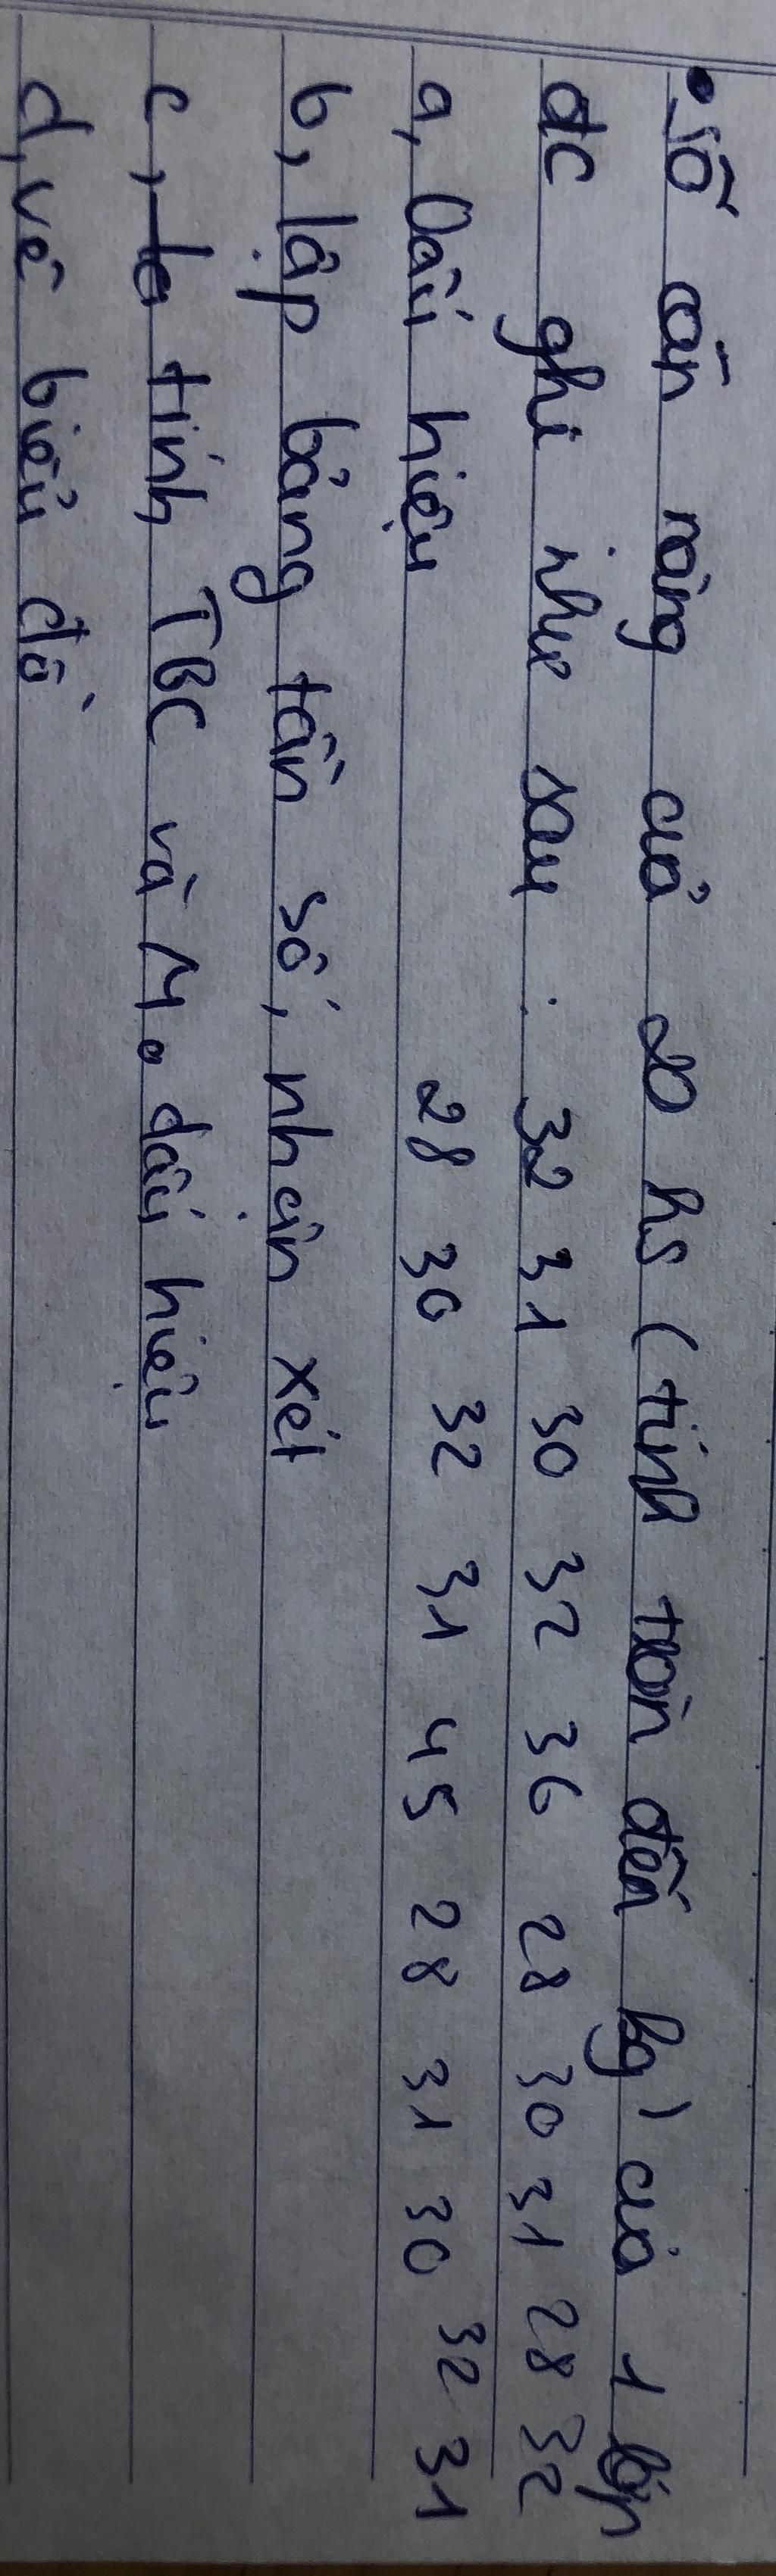 Số cân nặng của 20 hs (tính tròn đến kg) của 1 lớp
đc ghi như sau : 32 31 30 32 36 28 30 31 28 32
a, Dấu hiệu 28 30 32 31 45 28 31 30 32 31
b, lập bảng tần số, nhận xét
c, tính TBC và Mo dấu hiệu
d, vẽ biểu đồ